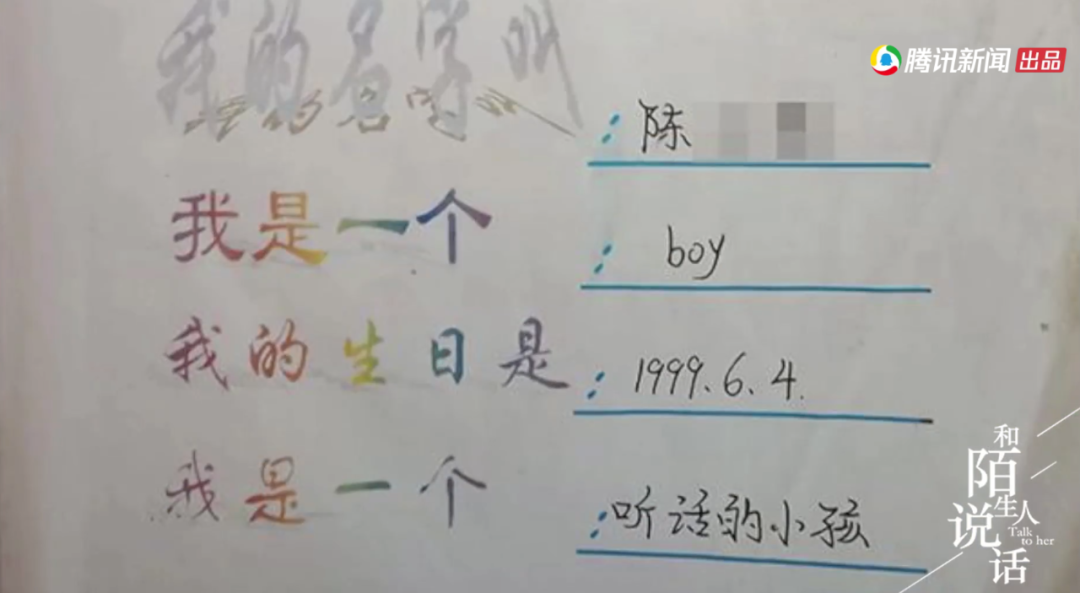 腾讯新闻 出品
我的名字叫：陈
我是一个：boy
我的生日是：1999.6.4.
我是一个：听话的小孩
和陌生人说话
Talk to her